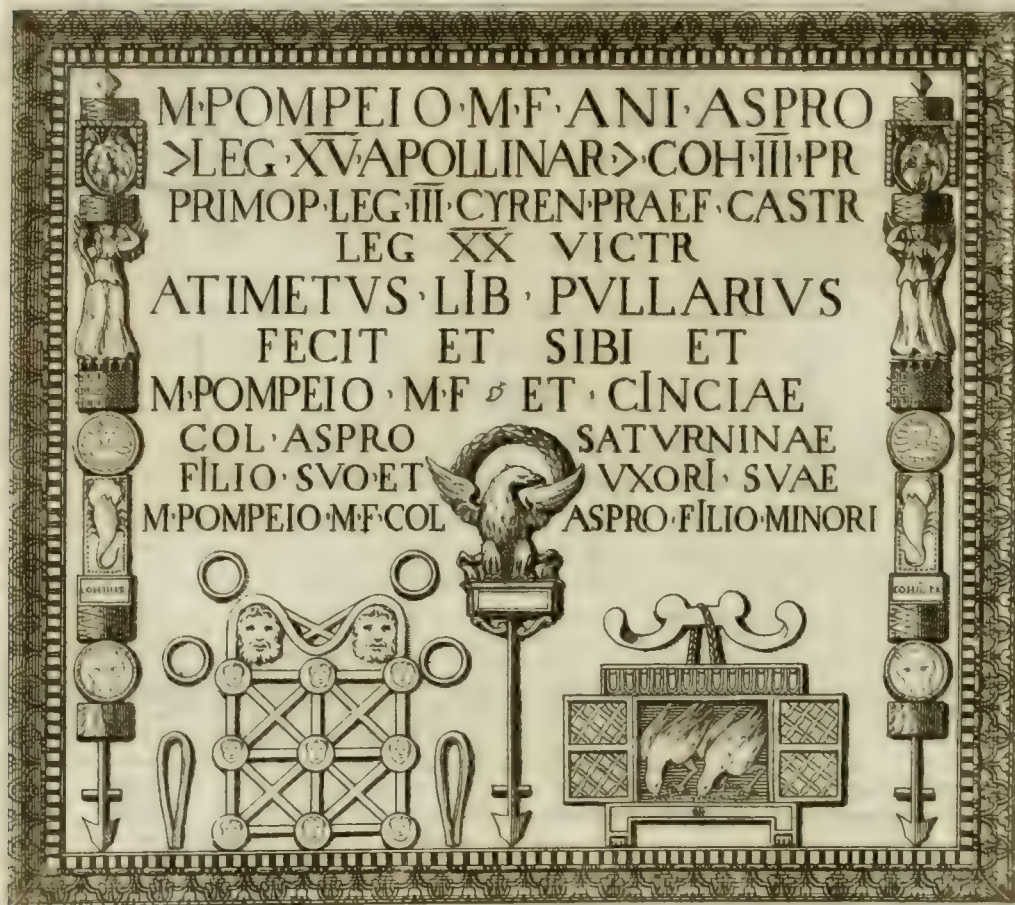 M·POMPEIO·M·F·ANI·ASPRO
>LEG·X̅V̅·APOLLINAR·>·COH·I̅I̅I̅·PR
PRIMOP·LEG·I̅I̅I̅·CYREN·PRAEF·CASTR
LEG X̅X̅ VICTR
ATIMETVS·LIB·PVLLARIVS
FECIT ET SIBI ET
M·POMPEIO·M·F ET·CINCIAE
COL·ASPRO SATVRNINAE
FILIO·SVO·ET VXORI·SVAE
M·POMPEIO·M·F·COL ASPRO·FILIO·MINORI